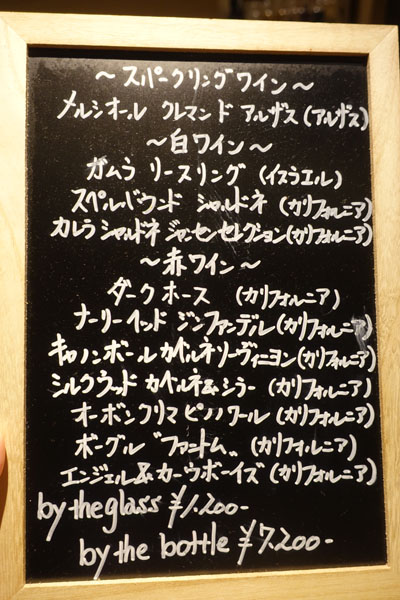 〜スパークリングワイン〜
メルシオール クレマンド アルザス(アルザス)
〜白ワイン〜
ガムラ リースリング (イスラエル)
スペルバウンド シャルドネ (カリフォルニア)
カレラ シャルドネ ジャンセンセレクション(カリフォルニア)
〜赤ワイン〜
ダークホース (カリフォルニア)
ナーリーヘッド ジンファンデル(カリフォルニア)
キャノンボール カベルネソーヴィニヨン(カリフォルニア)
シルクウッド カベルネ&シラー (カリフォルニア)
オーボンクリマ ピノノワール(カリフォルニア)
ボーグル〝ファントム〟(カリフォルニア)
エンジェル&カーウボーイズ(カリフォルニア)
by the glass ¥1.200-
by the bottle ¥7.200-